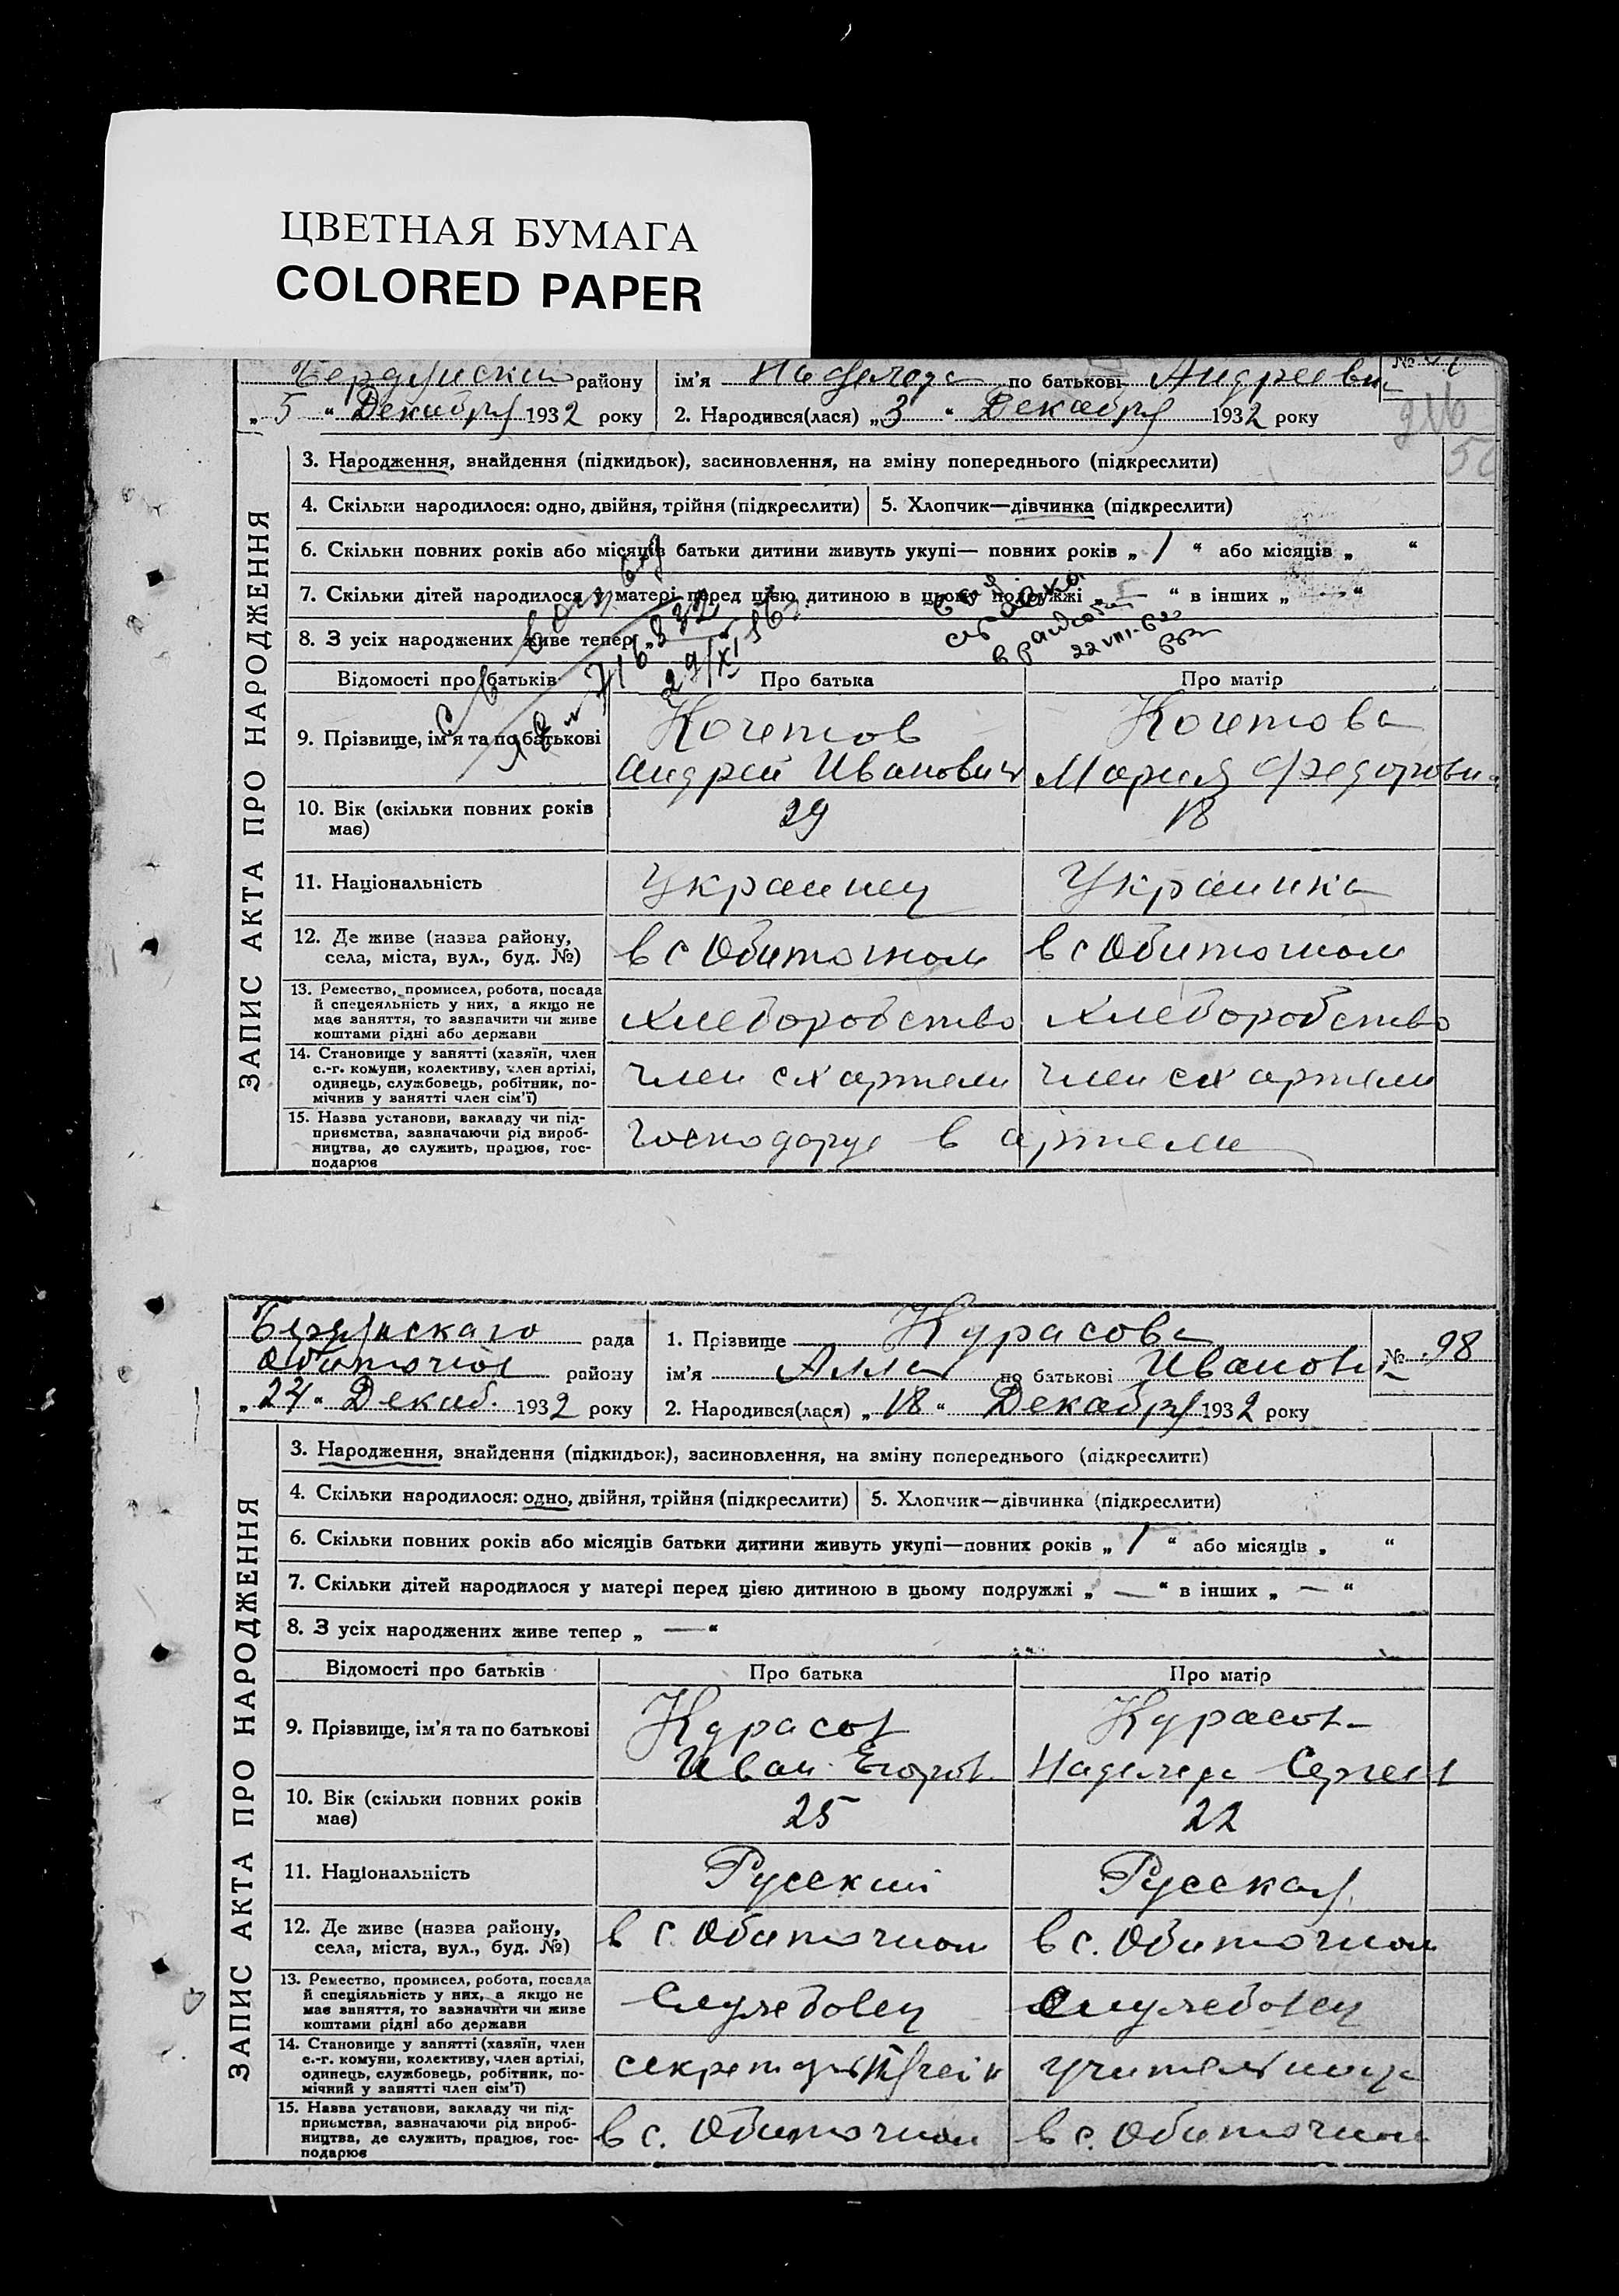 ЦВЕТНАЯ БУМАГА
COLORED PAPER
району ім'я Надежда по батькові Андреевна №
„ 5 “ Декабря 1932 року 2. Народився(лася) „ 3 “ Декабря 1932 року
ЗАПИС АКТА ПРО НАРОДЖЕННЯ
3. Народження, знайдення (підкидьок), засиновлення, на зміну попереднього (підкреслити)
4. Скільки народилося: одно, двійня, трійня (підкреслити) 5. Хлопчик—дівчинка (підкреслити)
6. Скільки повних років або місяців батьки дитини живуть укупі— повних років „ 1 “ або місяців „ “
7. Скільки дітей народилося у матері перед цією дитиною в цьому подружжі „ — “ в інших „ — “
8. З усіх народжених живе тепер „
22 VIII-62
29/XI 56
Відомості про батьків Про батька Про матір
9. Прізвище, ім'я та по батькові Кочетов Кочетова
Андрей Иванович Мария
10. Вік (скільки повних років має) 29 18
11. Національність Украинец Украинка
12. Де живе (назва району, села, міста, вул., буд. №) в с Обиточном в с Обиточном
13. Ремество, промисел, робота, посада й спецеяльність у них, а якщо не має заняття, то зазначити чи живе коштами рідні або держави Хлеборобство Хлеборобство
14. Становище у занятті (хазяїн, член с.-г. комуни, колективу, член артілі, одинець, службовець, робітник, помічнив у занятті член сім'ї) член сх артели член сх артели
15. Назва установи, закладу чи підприємства, зазначаючи рід виробництва, де служить, працює, господарює в артели
Бердянскаго рада 1. Прізвище Курасова № 98
Обиточное району ім'я Алла по батькові Иванов
„ 24 “ Декаб. 1932 року 2. Народився(лася) „ 18 “ Декабря 1932 року
ЗАПИС АКТА ПРО НАРОДЖЕННЯ
3. Народження, знайдення (підкидьок), засиновлення, на зміну попереднього (підкреслити)
4. Скільки народилося: одно, двійня, трійня (підкреслити) 5. Хлопчик—дівчинка (підкреслити)
6. Скільки повних років або місяців батьки дитини живуть укупі—повних років „ 1 “ або місяців „ “
7. Скільки дітей народилося у матері перед цією дитиною в цьому подружжі „ — “ в інших „ — “
8. З усіх народжених живе тепер „ — “
Відомості про батьків Про батька Про матір
9. Прізвище, ім'я та по батькові Курасов Курасов
Иван Егоров. Надежда Сергеев
10. Вік (скільки повних років має) 25 22
11. Національність Русский Русская
12. Де живе (назва району, села, міста, вул., буд. №) в с. Обиточном в с. Обиточном
13. Ремество, промисел, робота, посада й спеціяльність у них, а якщо не має заняття, то зазначити чи живе коштами рідні або держави Службовец Службовец
14. Становище у занятті (хазяїн, член с.-г. комуни, колективу, член артілі, одинець, службовець, робітник, помічний у занятті член сім'ї) секретарь учительница
15. Назва установи, закладу чи підприємства, зазначаючи рід виробництва, де служить, працює, господарює в с. Обиточном в с. Обиточном